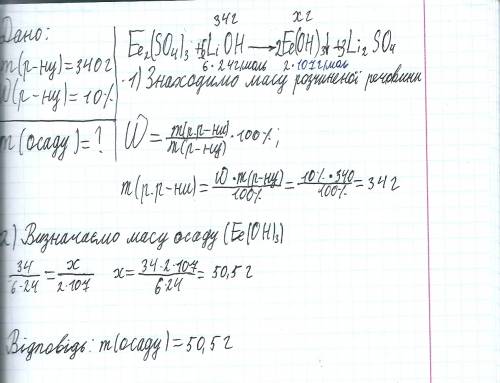 Дано:
m(р-ну)=340г
W(р-ну)=10%
m(осаду)=?
34г хг
Fe₂(SO₄)₃+6LiOH→2Fe(OH)₃↓+3Li₂SO₄
6·24г/моль 2·107г/моль
1) Знаходимо масу розчиненої речовини
W=m(р.р-ни)/m(р-ну)·100%;
m(р.р-ни)=W·m(р-ну)/100%=10%·340/100%=34г
2) Визначаємо масу осаду (Fe(OH)₃)
34/6·24=x/2·107 x=34·2·107/6·24=50,5г
Відповідь: m(осаду)=50,5г